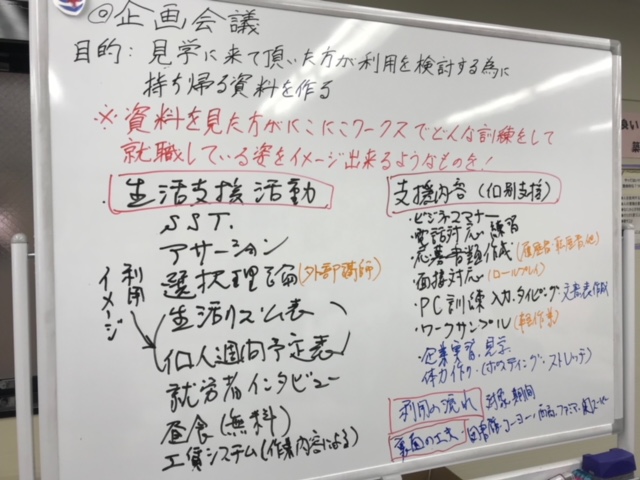 ◎企画会議
目的：見学に来て頂いた方が利用を検討する為に
持ち帰る資料を作る
※資料を見た方がにこにこワークスでどんな訓練をして
就職している姿をイメージ出来るようなものを！
生活支援活動
SST.
アサーション
選択理論(外部講師)
利用イメージ
生活リズム表
個人週間予定表
就労者インタビュー
昼食(無料)
工賃システム(作業内容による)
支援内容(個別支援)
・ビジネスマナー
・電話対応 練習
・応募書類作成(履歴書・
・面接対応(ロールプレイ)
・PC訓練 入力、タイピング、文書表作成
・ワークサンプル(軽作業)
・企業実習、見学
体力作り・(ポスティング・ストレッチ)
利用の流れ 対象、期間
図書館、コーヨー、